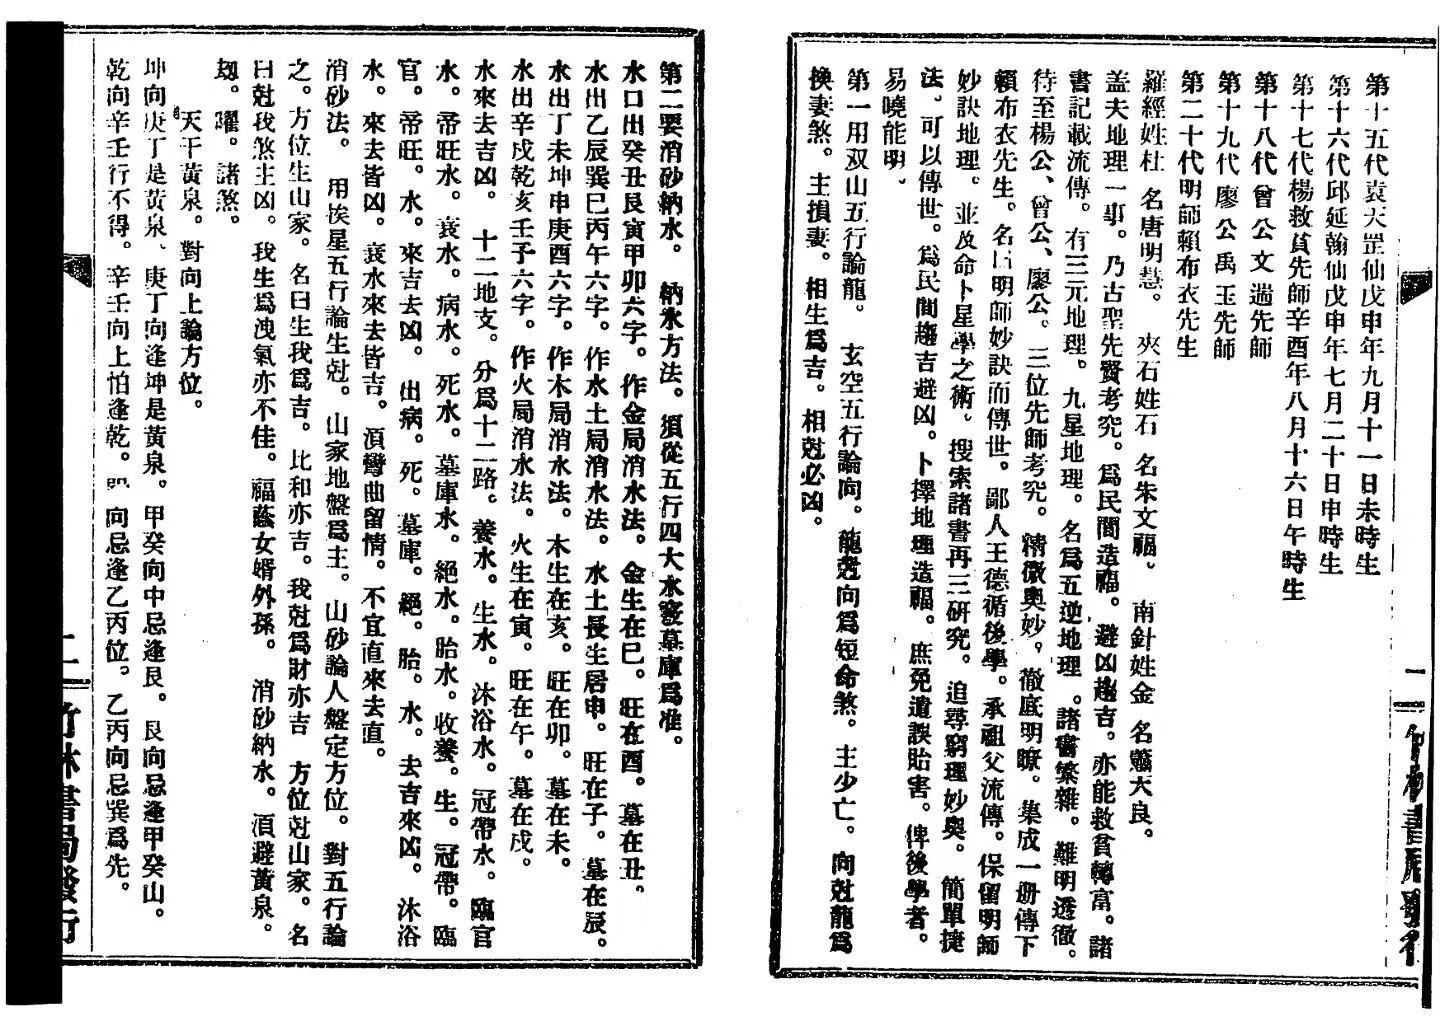 第十五代袁天罡仙戊申年九月十一日未時生
第十六代邱延翰仙戊申年七月二十日申時生
第十七代楊救貧先師辛酉年八月十六日午時生
第十八代曾公文遄先師
第十九代廖公禹玉先師
第二十代明師賴布衣先生
羅經姓杜 名唐明慧。 夾石姓石 名朱文福。 南針姓金 名簫大良。
盖夫地理一事。乃古聖先賢考究。爲民間造福。避凶趨吉。亦能救貧轉富。諸
書記載流傳。有三元地理。九星地理。名爲五逆地理。諸書繁雜。難明透徹。
待至楊公、曾公、廖公。三位先師考究。精微奥妙，徹底明瞭。集成一册傳下
賴布衣先生。名曰明師妙訣而傳世。鄙人王德循後學。承祖父流傳。保留明師
妙訣地理。並及命卜星學之術。搜索諸書再三研究。追尋窮理妙奥。簡單捷
法、可以傳世。爲民間趨吉避凶。卜擇地理造福。庶免遺誤貽害。俾後學者。
易曉能明、
第一用双山五行論龍。 玄空五行論向。龍尅向爲短命煞。主少亡。向尅龍爲
換妻煞。主損妻。相生爲吉。相尅必凶。
一
第二要消砂納水。 納水方法。須從五行四大水竅墓庫爲准。
水口出癸丑艮寅甲卯六字。作金局消水法。金生在巳。旺在酉。墓在丑。
水出乙辰巽巳丙午六字。作水土局消水法。水土長生居申。旺在子。墓在辰。
水出丁未坤申庚酉六字。作木局消水法。木生在亥。旺在卯。墓在未。
水出辛戌乾亥壬子六字。作火局消水法。火生在寅。旺在午。墓在戌。
水來去吉凶。 十二地支。分爲十二路。養水。生水。沐浴水。冠帶水。臨官
水。帝旺水。衰水。病水。死水。墓庫水。絕水。胎水。收養。生。冠帶。臨
官。帝旺。水。來吉去凶。 出病。死。墓庫。絕。胎。水。去吉來凶。 沐浴
水。來去皆凶。衰水來去皆吉。須彎曲留情。不宜直來去直。
消砂法。 用挨星五行論生尅。山家地盤爲主。山砂論人盤定方位。對五行論
之。方位生山家。名曰生我爲吉。比和亦吉。我尅爲財亦吉 方位尅山家。名
曰尅我煞主凶。我生爲洩氣亦不佳。福蔭女婿外孫。 消砂納水。須避黃泉。
刼。曜。諸煞。
天干黃泉。對向上論方位。
坤向庚丁是黃泉、庚丁向逢坤是黃泉。甲癸向中忌逢艮。艮向忌逢甲癸山。
乾向辛壬行不得。辛壬向上怕逢乾。 向忌逢乙丙位。乙丙向忌巽爲先。
二 竹林書局發行